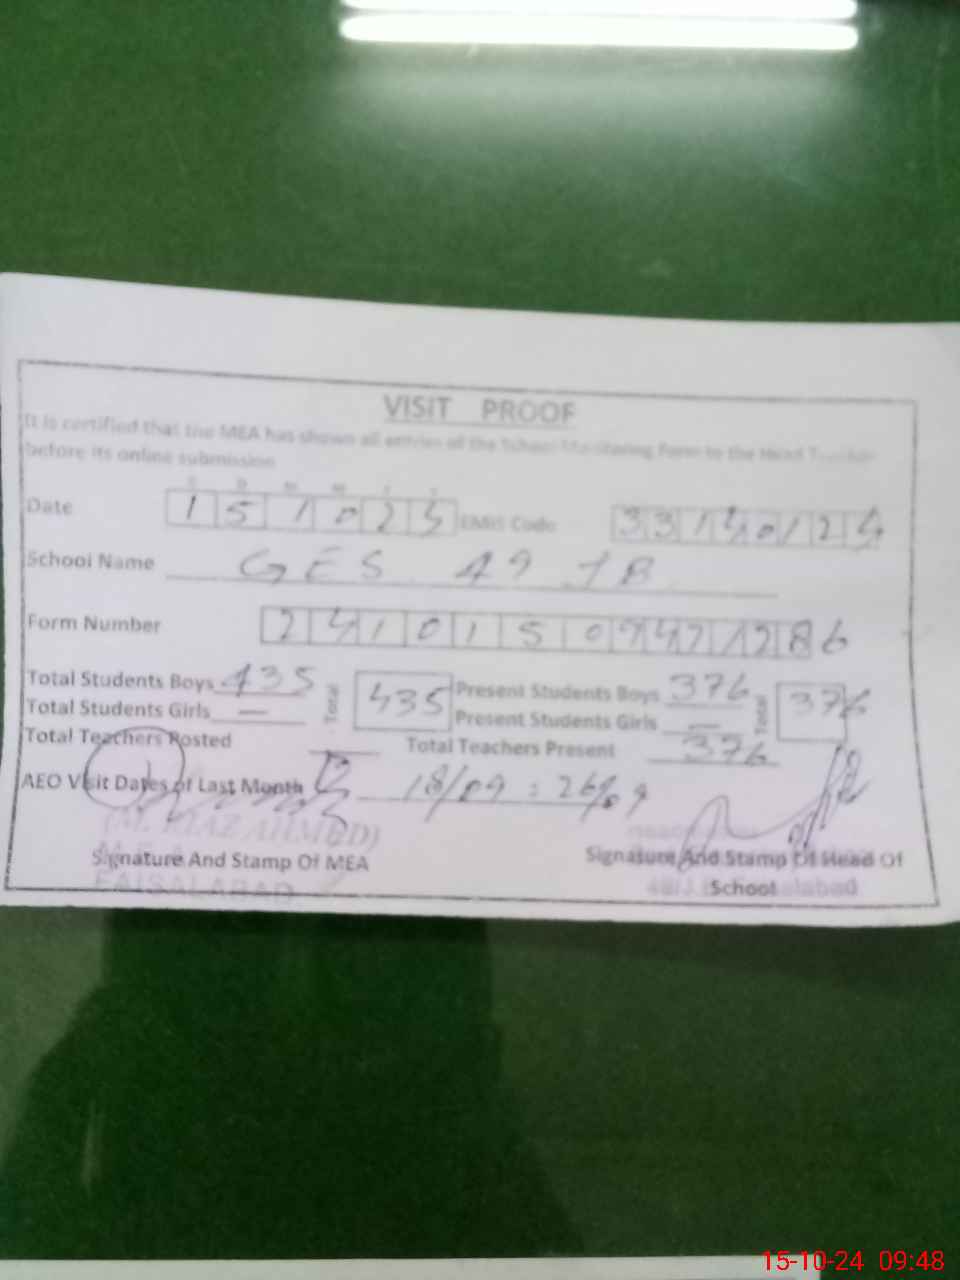 VISIT PROOF
It is certified that the MEA has shown all entries of the School Monitoring Form to the Head Teacher
before its online submission
D D M M Y Y
Date 1 5 1 0 2 4 EMIS Code 3 3 1 4 0 1 2 4
School Name GES 49 JB
Form Number 2 4 1 0 1 5 0 9 4 7 1 2 8 6
Total Students Boys 435 Total 435 Present Students Boys 376 Total 376
Total Students Girls — Present Students Girls —
Total Teachers Posted Total Teachers Present 376
AEO Visit Dates of Last Month 18/09 : 26/09
(M. RIAZ AHMED)
Signature And Stamp Of MEA Signature And Stamp Of Head Of
FAISALABAD School
15-10-24 09:48